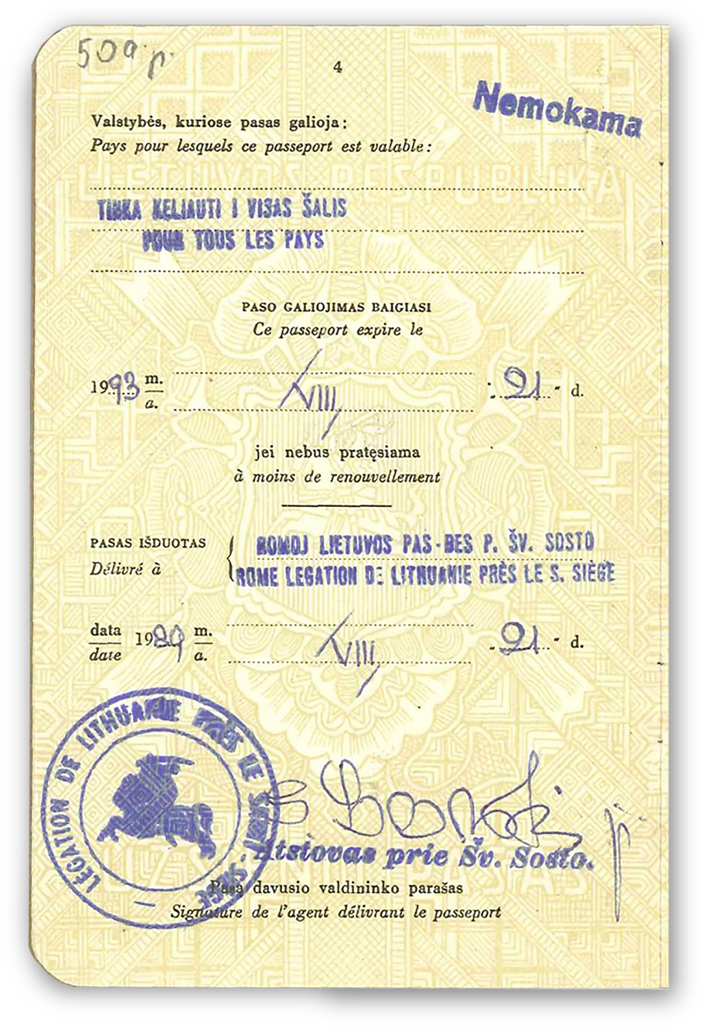 509 p.
4
Nemokama
Valstybės, kuriose pasas galioja:
Pays pour lesquels ce passeport est valable:
LIETUVOS RESPUBLIKA
TINKA KELIAUTI I VISAS ŠALIS
POUR TOUS LES PAYS
PASO GALIOJIMAS BAIGIASI
Ce passeport expire le
1993 m. VIII 21 d.
a.
jei nebus pratęsiama
à moins de renouvellement
PASAS IŠDUOTAS ROMOJ LIETUVOS PAS-BES P. ŠV. SOSTO
Délivré à ROME LEGATION DE LITHUANIE PRÈS LE S. SIÈGE
data 1989 m. VIII 21 d.
date a.
LÉGATION DE LITHUANIE PRÈS LE SAINT SIÈGE
Atstovas prie Šv. Sosto.
Pasą davusio valdininko parašas
Signature de l'agent délivrant le passeport